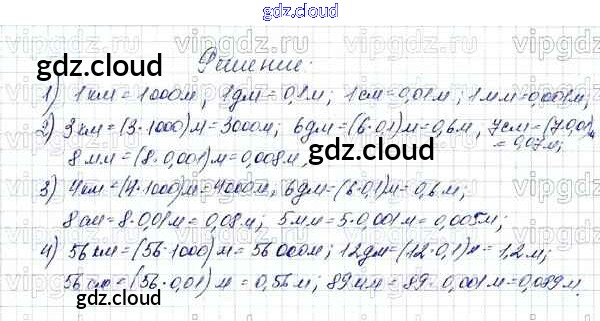 gdz.cloud
vipgdz.ru
Решение:
1) 1км = 1000м; 1дм = 0,1м; 1см = 0,01м; 1мм = 0,001м;
2) 3км = (3·1000)м = 3000м; 6дм = (6·0,1)м = 0,6м, 7см = (7·0,01)м
= 0,07м;
8мм = (8·0,001)м = 0,008м,
3) 4км = (4·1000)м = 4000м, 6дм = (6·0,1)м = 0,6м;
8см = 8·0,01м = 0,08м; 5мм = 5·0,001м = 0,005м;
4) 56км = (56·1000)м = 56000м; 12дм = (12·0,1)м = 1,2м;
56см = (56·0,01)м = 0,56м; 89мм = 89·0,001м = 0,089м.
gdz.cloud
gdz.cloud
gdz.cloud
gdz.cloud